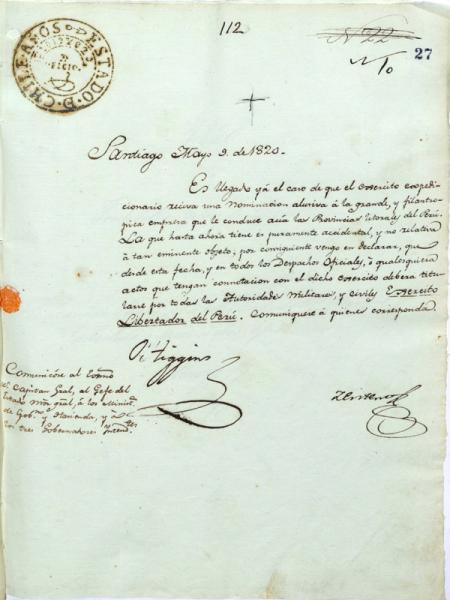 112
N 22
N 10
27
CHILE
ESTADO D
OFICIO
Santiago Mayo 9. de 1820.
Es llegado yá el caso de que el Exercito expedi-
cionario reciva una nominacion alusiva á la grande, y filantro-
pica empresa que le conduce acia las Provincias litorales del Perú.
La que hasta ahora tiene es puramente accidental, y no relativa
á tan eminente objeto; por consiguiente vengo en declarar, que
desde esta fecha, y en todos los Despachos Oficiales, ó qualesquiera
actos que tengan connotacion con el dicho exercito deberá titu-
larse por todas las Autoridades Militares, y Civiles Exercito
Libertador del Perú. Comuniquese á quienes corresponda.
O'Higgins
Zenteno
Comunicose al Exmo
Capitan Gral, al Gefe del
Estado Mor gral, á los Minist
de Gobno y Hacienda, y
tres Gobernadores Intend